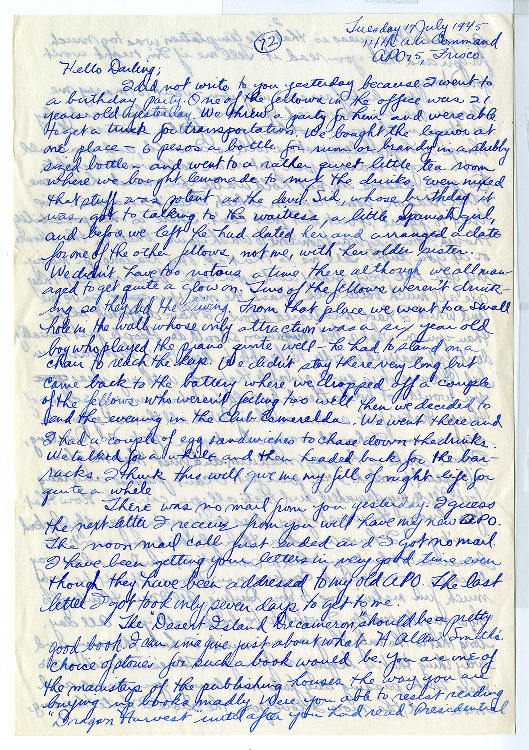 Tuesday 17 July 1945
72
Hq. a.a. Command
APO 75, Frisco.
Hello Darling;
I did not write to you yesterday because I went to
a birthday party. One of the fellows in the office was 21
years old yesterday. We threw a party for him and were able
to get a truck for transportation. We bought the liquor at
one place - 6 pesos a bottle for rum or brandy in a stubby
sized bottle - and went to a rather quiet little tea room
where we bought lemonade to mix the drinks. Even mixed
that stuff was potent as the devil. Sid, whose birthday it
was, got to talking to the waitress, a little Spanish girl,
and before we left he had dated her and arranged a date
for one of the other fellows, not me, with her older sister.
We didn't have too riotous a time there although we all man-
aged to get quite a glow on. Two of the fellows weren't drink-
ing so they did the driving. From that place we went to a small
hole in the wall whose only attraction was a six year old
boy who played the piano quite well - he had to stand on a
chair to reach the keys. We didn't stay there very long but
came back to the battery where we dropped off a couple
of the fellows who weren't feeling too well then we decided to
end the evening in the Club Esmeralda. We went there and
I had a couple of egg sandwiches to chase down the drinks.
We talked for a while and then headed back for the bar-
racks. I think this will give me my fill of night life for
quite a while
There was no mail from you yesterday. I guess
the next letter I receive from you will have my new APO.
The noon mail call just ended and I got no mail.
I have been getting your letters in very good time even
though they have been addressed to my old APO. The last
letter I got took only seven days to get to me.
The "Desert Island Decameron" should be a pretty
good book. I can imagine just about what H. Allen Smith's
choice of stories for such a book would be. You are one of
the mainstays of the publishing houses the way you are
buying up books madly. Were you able to resist reading
"Dragon Harvest" until after you had read "Presidential